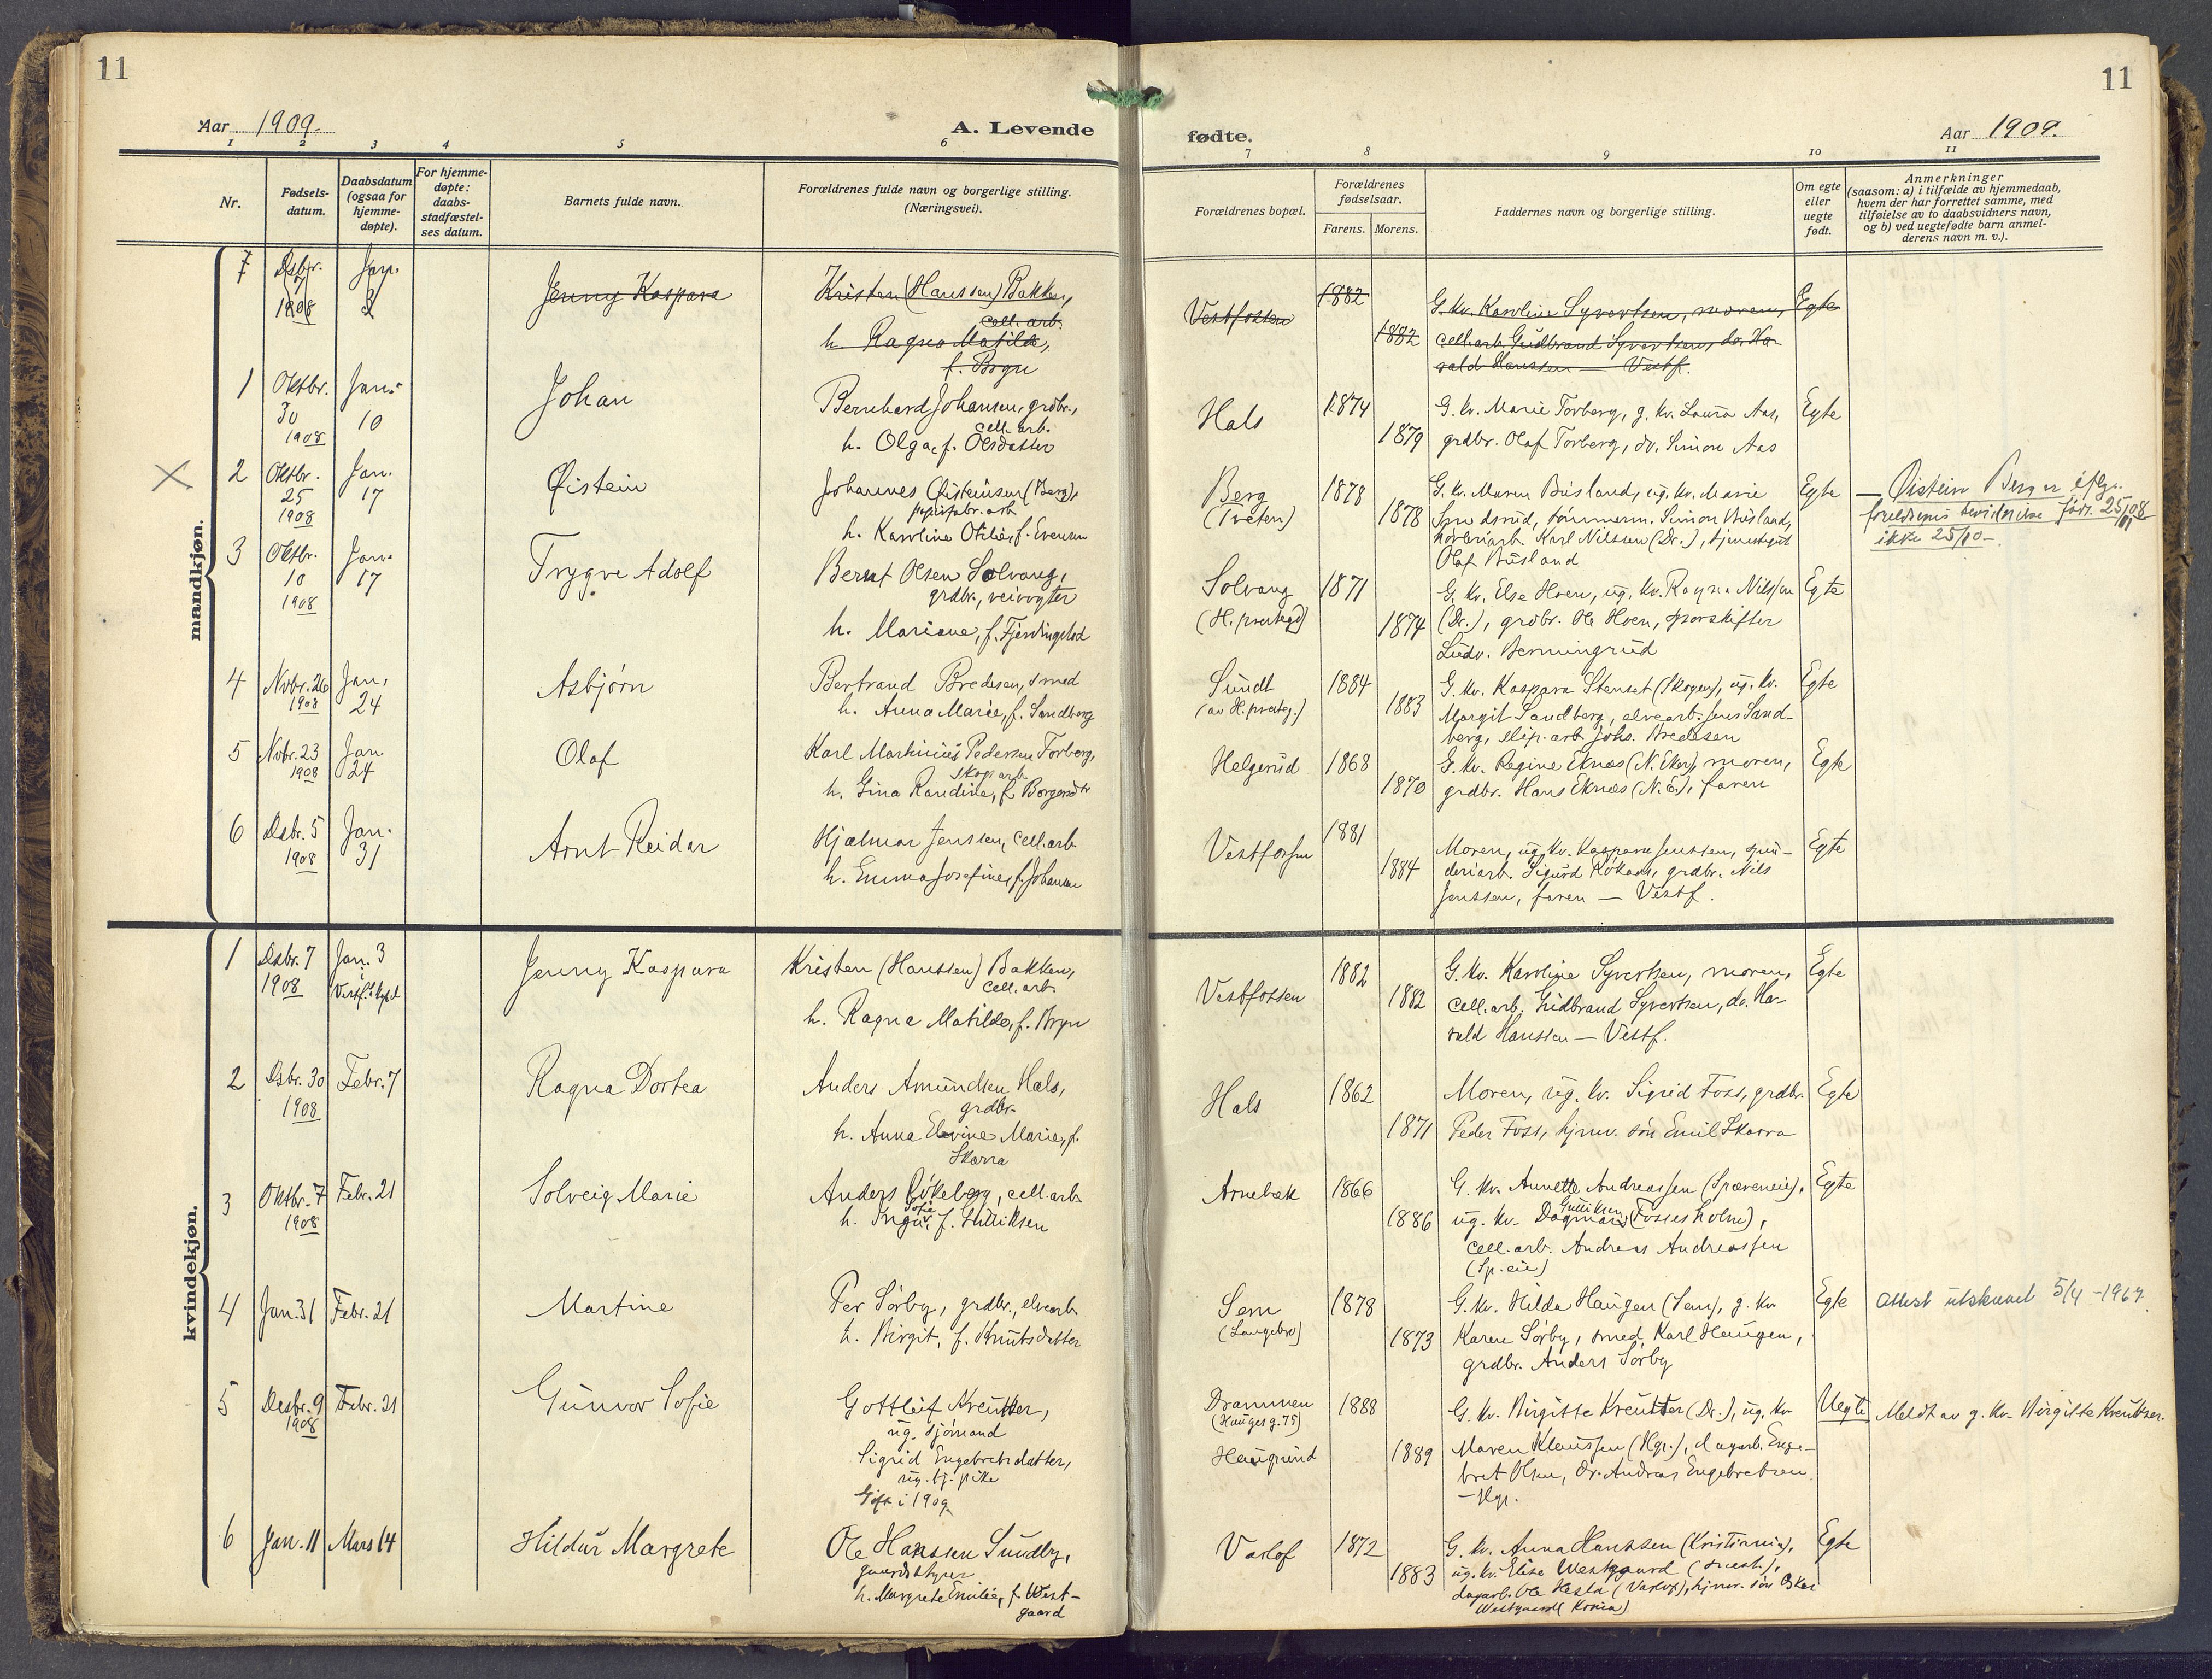 11
11
Aar 1909.
A. Levende
fødte.
Aar 1909.
1
2
3
4
5
6
7
8
9
10
11
Nr.
Fødsels-
datum.
Daabsdatum
(ogsaa for
hjemme-
døpte).
For hjemme-
døpte:
daabs-
stadfæstel-
ses datum.
Barnets fulde navn.
Forældrenes fulde navn og borgerlige stilling.
(Næringsvei).
Forældrenes bopæl.
Forældrenes
fødselsaar.
Farens.
Morens.
Faddernes navn og borgerlige stilling.
Om egte
eller
uegte
født.
Anmerkninger
(saasom: a) i tilfælde av hjemmedaab,
hvem der har forrettet samme, med
tilføielse av to daabsvidners navn,
og b) ved uegtefødte barn anmel-
derens navn m. v.).
mandkjøn.
Dsbr.
7
1908
Jan.
3
Jenny Kaspara
Kristen (Hanssen) Bakken,
cell. arb.
h. Ragna Matilde,
f. Bryn
Vestfossen
1882
1882
G. kv. Karoline Syvertsen, moren,
cell. arb. Gudbrand Syvertsen, do. Ha-
rald Hanssen — Vestf.
Egte
1
Oktbr.
30
1908
Jan.
10
Johan
Bernhard Johansen, grdbr.,
cell. arb.
h. Olga, f. Olsdatter
Hals
1874
1879
G. kv. Marie Torberg, g. kv. Laura Aas,
grdbr. Olaf Torberg, do. Simon Aas
Egte
2
Oktbr.
25
1908
Jan.
17
Øistein
Johannes Øisteinsen (Berg),
papirfabr. arb.
h. Karoline Otilie, f. Evensen
Berg
(Tveten)
1878
1878
G. kv. Maren Busland, ug. kv. Marie
tømmerm. Simon Busland,
Karl Nilssen (Dr.), tjenestegut
Olaf Busland
Egte
— Øistein Berger iflg.
forældrenes bevidnelse født 25/11 08
ikke 25/10 —.
3
Oktbr.
10
1908
Jan.
17
Trygve Adolf
Bernt Olsen Solvang,
grdbr., veivogter
h. Mariane, f. Fjerdingstad
Solvang
(H. prestegd)
1871
1874
G. kv. Else Hoen, ug. kv. Ragna Nilssen
(Dr.), grdbr. Ole Hoen, sporskifter
Ludv. Berningrud
Egte
4
Nvbr. 26
1908
Jan.
24
Asbjørn
Bertrand Bredesen, smed
h. Anna Marie, f. Sandberg
Sundt
(av H. presteg.)
1884
1883
G. kv. Kaspara Stenset (Skogen), ug. kv.
Margit Sandberg, elvearb. Jens Sand-
berg, slip. arb. Johs. Bredesen
Egte
5
Nvbr. 23
1908
Jan.
24
Olaf
Karl Martinius Pedersen Torberg,
skog. arb.
h. Gina Randine, f. Borgersdtr
Helgerud
1868
1870
G. kv. Regine Eknæs (N. Eker), moren,
grdbr. Hans Eknæs (N. E.), faren
Egte
6
Dsbr. 5
1908
Jan.
31
Arnt Reidar
Hjalmar Jenssen, cell. arb.
h. Emma Josefine, f. Johansen
Vestfossen
1881
1884
Moren, ug. kv. Kaspara Jenssen, spin-
deriarb. Sigurd Røkaas, grdbr. Nils
Jenssen, faren — Vestf.
Egte
kvindekjøn.
1
Dsbr. 7
1908
Jan. 3
i
Vestf. kpel
Jenny Kaspara
Kristen (Hanssen) Bakken,
cell. arb.
h. Ragna Matilde, f. Bryn
Vestfossen
1882
1882
G. kv. Karoline Syvertsen, moren,
cell. arb. Gudbrand Syvertsen, do. Ha-
rald Hanssen — Vestf.
Egte
2
Dsbr. 30
1908
Febr. 7
Ragna Dortea
Anders Amundsen Hals,
grdbr.
h. Anna Elevine Marie, f.
Skarra
Hals
1862
1871
Moren, ug. kv. Sigrid Foss, grdbr.
Peder Foss, hjmv. søn Emil Skarra
Egte
3
Oktbr. 7
1908
Febr. 21
Solveig Marie
Anders Røkeberg, cell. arb.
Sofie
h. Inga, f. Gulliksen
Arnebæk
1866
1886
G. kv. Annette Andreassen (Spæreneie),
Gulliksen
ug. kv. Dagmar (Fossesholm),
cell. arb. Andreas Andreassen
(Sp. eie)
Egte
4
Jan. 31
Febr. 21
Martine
Per Sørby, grdbr., elvearb.
h. Birgit, f. Knutsdatter
Sem
(Langebro)
1878
1873
G. kv. Hilda Haugen (Sem), g. kv.
Karen Sørby, smed Karl Haugen,
grdbr. Anders Sørby
Egte
Attest utskrevet 5/4 - 1967.
5
Desbr. 9
1908
Febr. 21
Gunvor Sofie
Gottleif Kreutzer,
ug. sjømand
Sigrid Engebretsdatter,
ug. tj. pike
Gift i 1909
Drammen
(Hauges g. 75)
Haugrund
1888
1889
G. kv. Birgitte Kreutzer (Dr.), ug. kv.
Maren Klaussen (Hgr.), dagarb. Enge-
bret Olsen, do. Andreas Engebretsen.
— Hgr.
Uegte
Meldt av g. kv. Birgitte Kreutzer.
6
Jan. 11
Mars 14
Hildur Margrete
Ole Hanssen Sundby,
gaardsstyrer
h. Margrete Emilie, f. West-
gaard
Varlof
1872
1883
G. kv. Anna Hanssen (Kristiania),
ug. kv. Elise Westgaard (smest.),
dagarb. Ole Hesla (Varlof), hjmv. søn Oskar
Westgaard (Krnia)
Egte